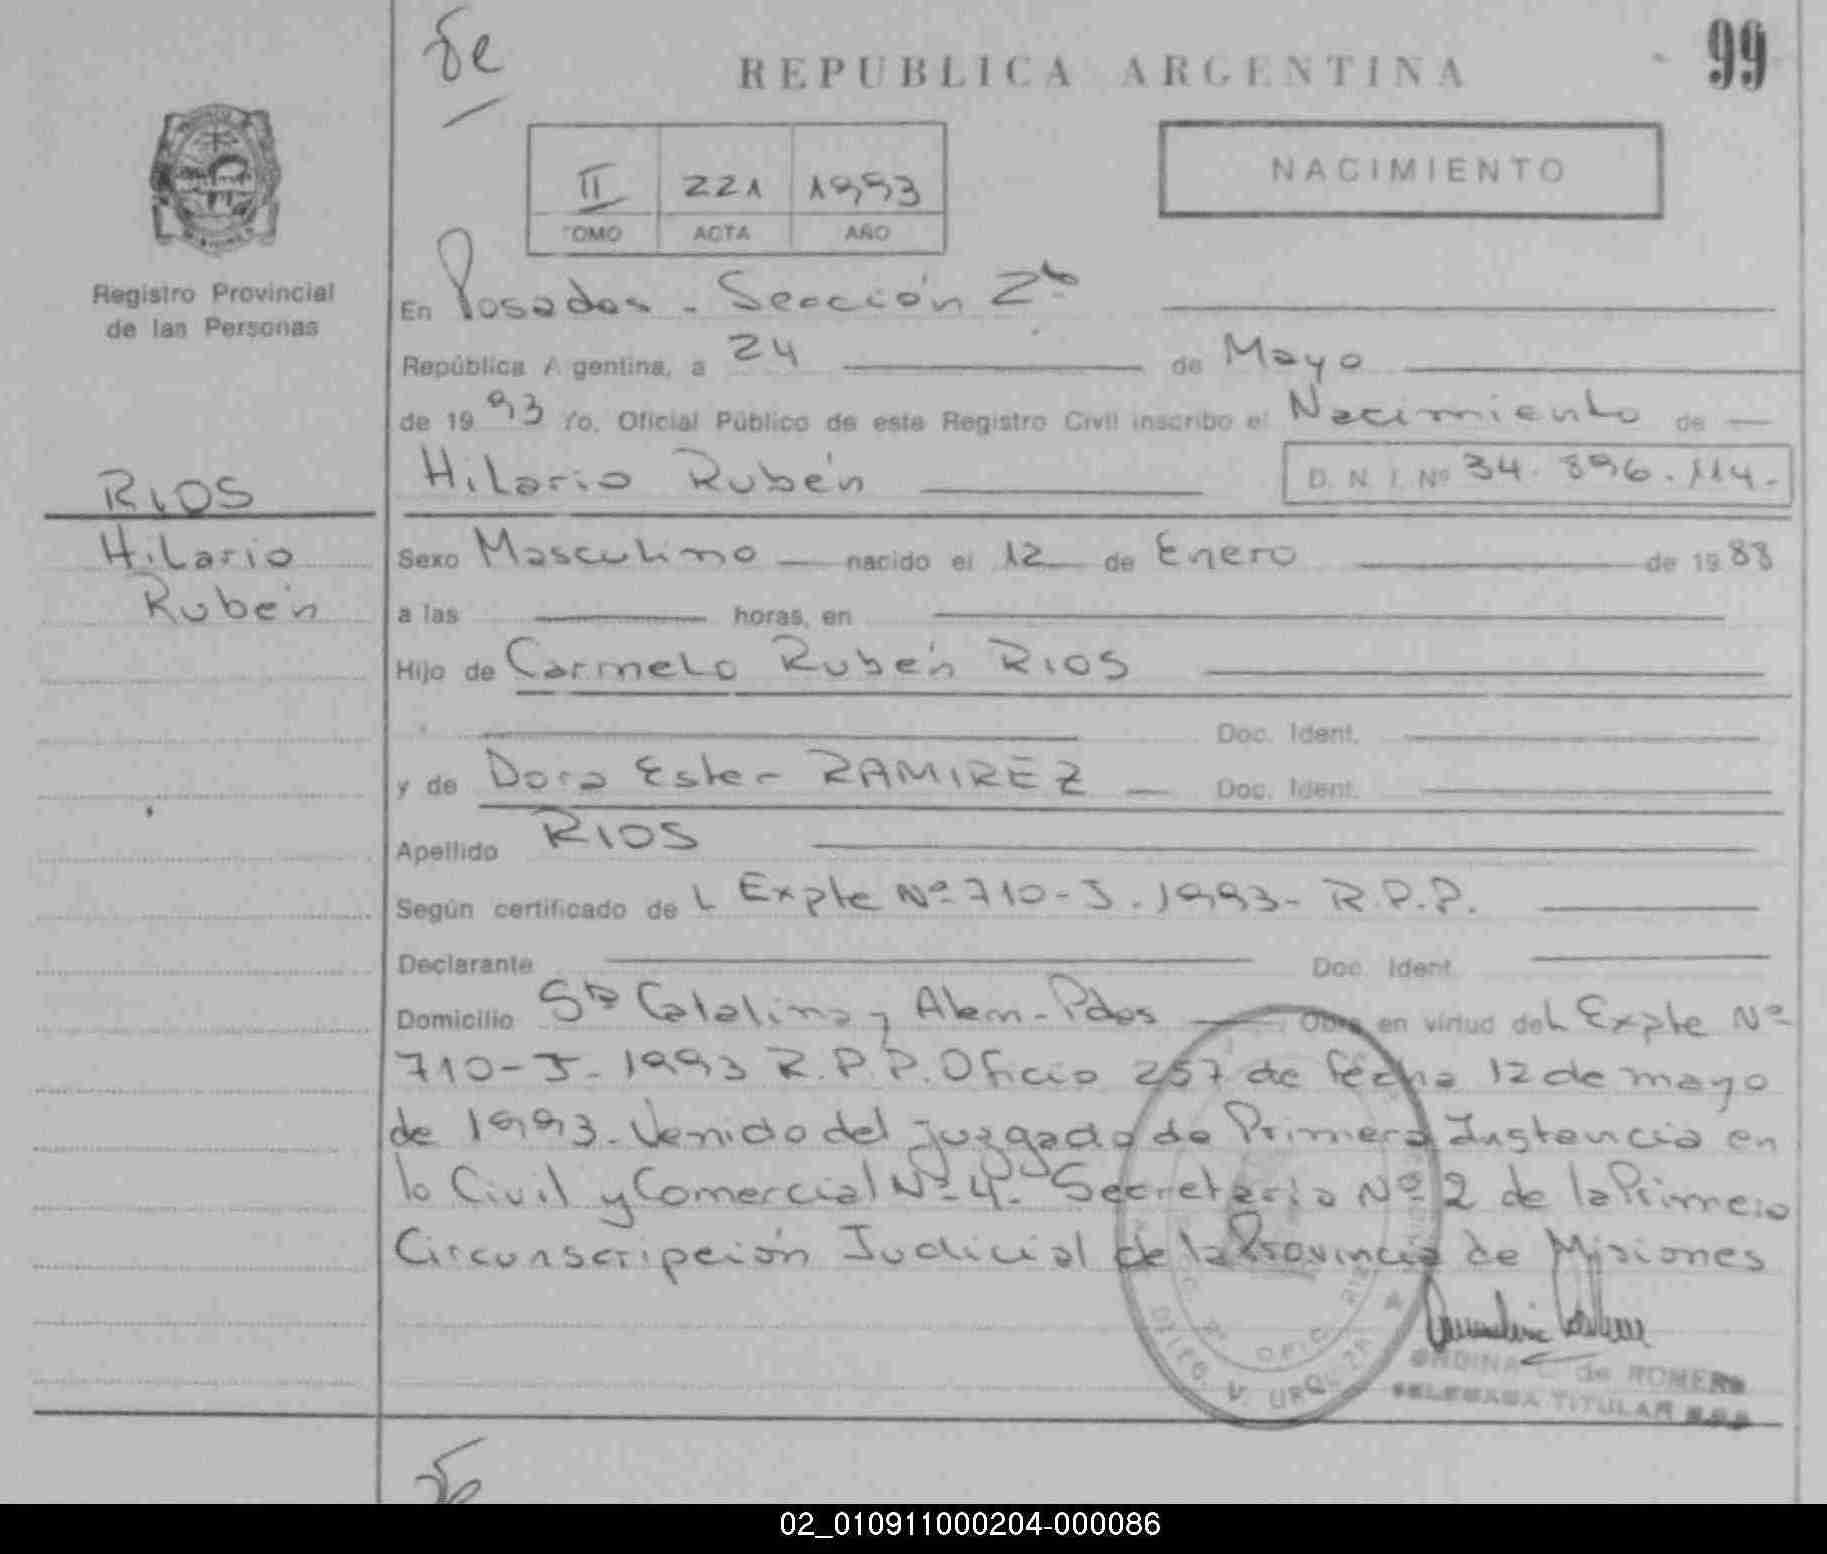 REPUBLICA ARGENTINA
99
NACIMIENTO
II 221 1993
TOMO ACTA AÑO
MISIONES
Registro Provincial
de las Personas
En Posadas - Sección 2ª
República Argentina, a 24 de Mayo
de 1993 Yo, Oficial Público de este Registro Civil inscribo el Nacimiento de
RIOS
Hilario Rubén
D. N. I. Nº 34.896.114.
Hilario
Rubén
Sexo Masculino nacido el 12 de Enero de 1988
a las horas, en
Hijo de Carmelo Rubén RIOS
Doc. Ident.
y de Dora Ester RAMIREZ Doc. Ident.
Apellido RIOS
Según certificado de L Expte Nº 710-J-1993- R.P.P.
Declarante Doc. Ident.
Domicilio Sta Catalina y Alem-Pdas Obra en virtud del Expte Nº
710-J-1993 R.P.P. Oficio 257 de fecha 12 de mayo
de 1993. Venido del juzgado de Primera Instancia en
lo Civil y Comercial Nº 4- Secretaria Nº 2 de la Primera
Circunscripción Judicial de la Provincia de Misiones
V. URQUIZA
de ROMERO
TITULAR
02_010911000204-000086